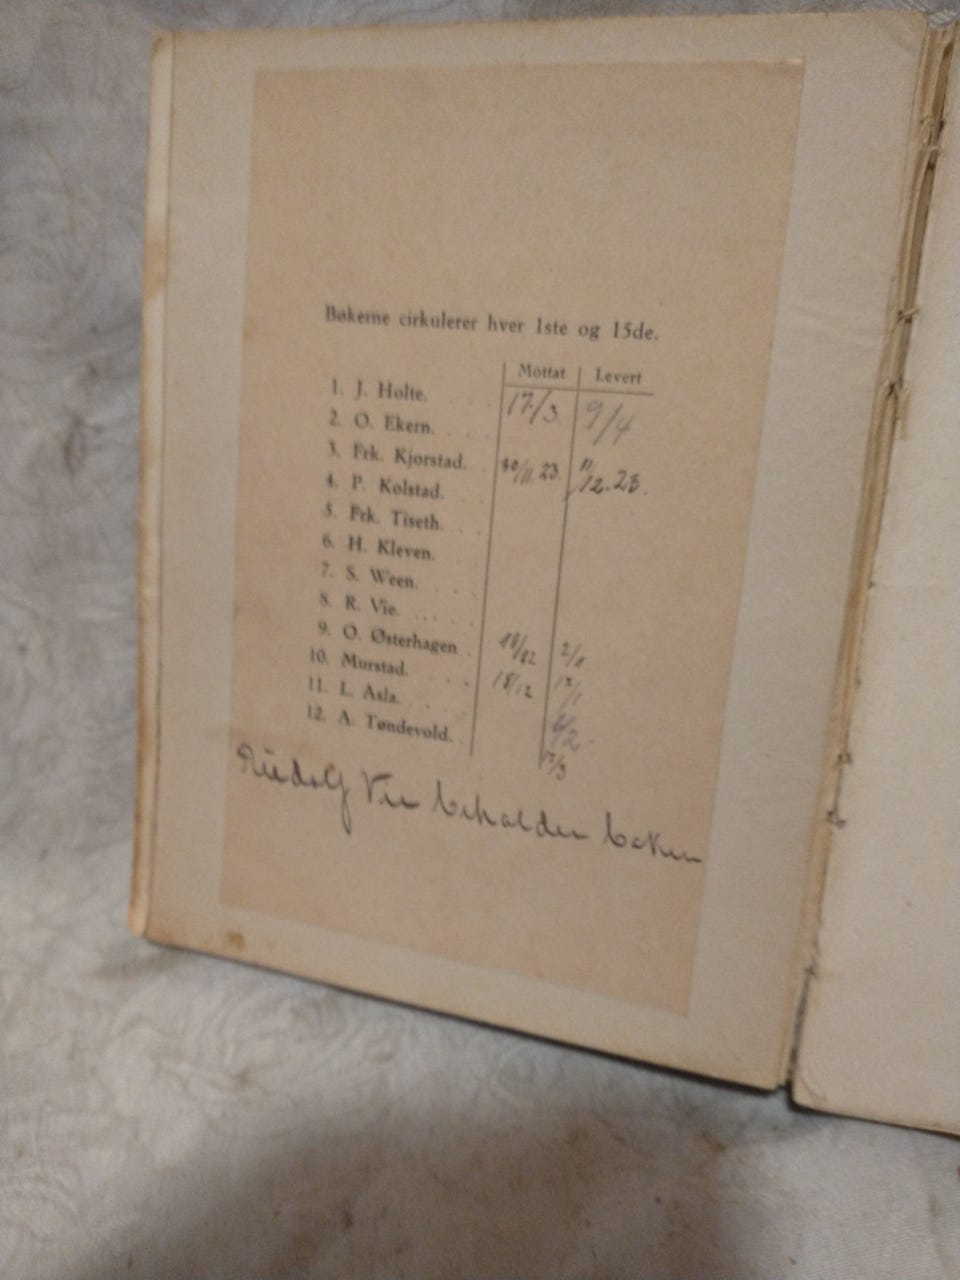 Bøkerne cirkulerer hver 1ste og 15de.
Mottat Levert
1. J. Holte. 17/3 9/4
2. O. Ekern.
3. Frk. Kjorstad. 30/11 23. 11/12.23.
4. P. Kolstad.
5. Frk. Tiseth.
6. H. Kleven.
7. S. Ween.
8. R. Vie.
9. O. Østerhagen 2/1
10. Murstad. 18/12
11. L. Asla. 6/2
12. A. Tøndevold.
Rudolf Vie beholder boken